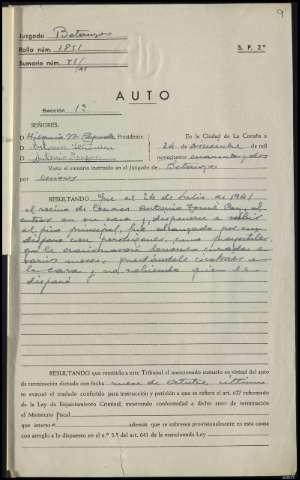 9
Juzgado Betanzos
Rollo núm. 1851
Sumario núm. 151/941
S. P. 2ª
AUTO
Sección 1ª
SEÑORES:
D Presidente
D Antonio
D Antonio
En la Ciudad de La Coruña a
24 de Noviembre de mil
novecientos cuarenta y dos
Visto el sumario instruido en el Juzgado de Betanzos
por lesiones
RESULTANDO Que el 26 de Julio de 1941
el vecino de Antonio al
entrar en su casa y disponerse a subir
al piso principal, fue alcanzado por un
disparo con perdigones, cuyo
le lesiones curadas a
varios meses, quedándole cicatrices en
la cara y no sabiendo quien le
disparó
RESULTANDO que remitido a este Tribunal el mencionado sumario en virtud del auto
de terminación dictado con fecha nueve de Octubre último
se evacuó el traslado conferido para instrucción y petición a que se refiere el art. 627 reformado
de la Ley de Enjuiciamiento Criminal, mostrando conformidad a dicho auto de terminación
el Ministerio Fiscal
que interesó además que se sobresea provisionalmente en esta causa
con arreglo a lo dispuesto en el n.º 1.º del art. 641 de la mencionada Ley